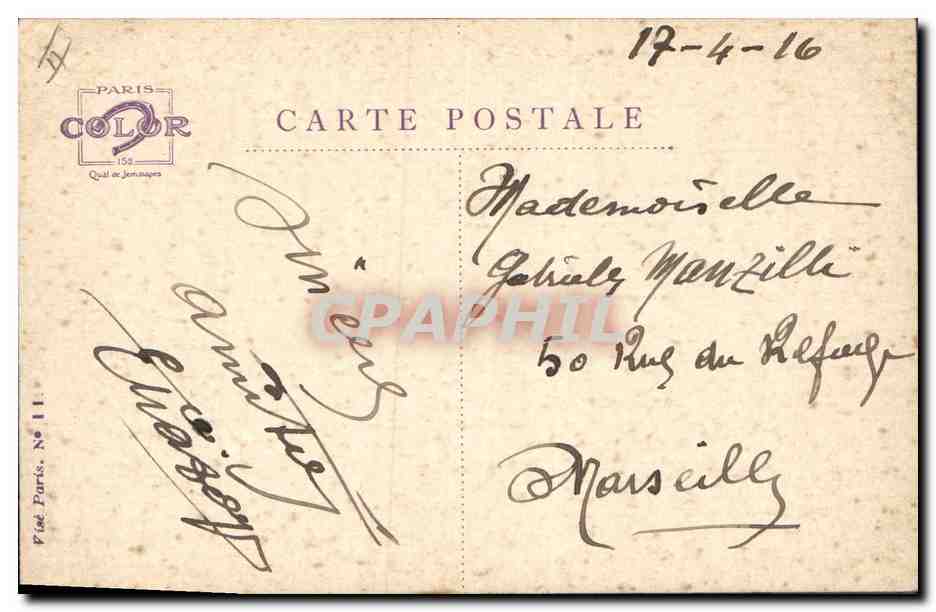 17-4-16
PARIS
COLOR
152
Quai de Jemmapes
CARTE POSTALE
Mademoiselle
Gabrielle Manzilli
50 Rue du Refuge
Marseille
Sincère
amitié
Visé Paris. Nº 11.
CPAPHIL